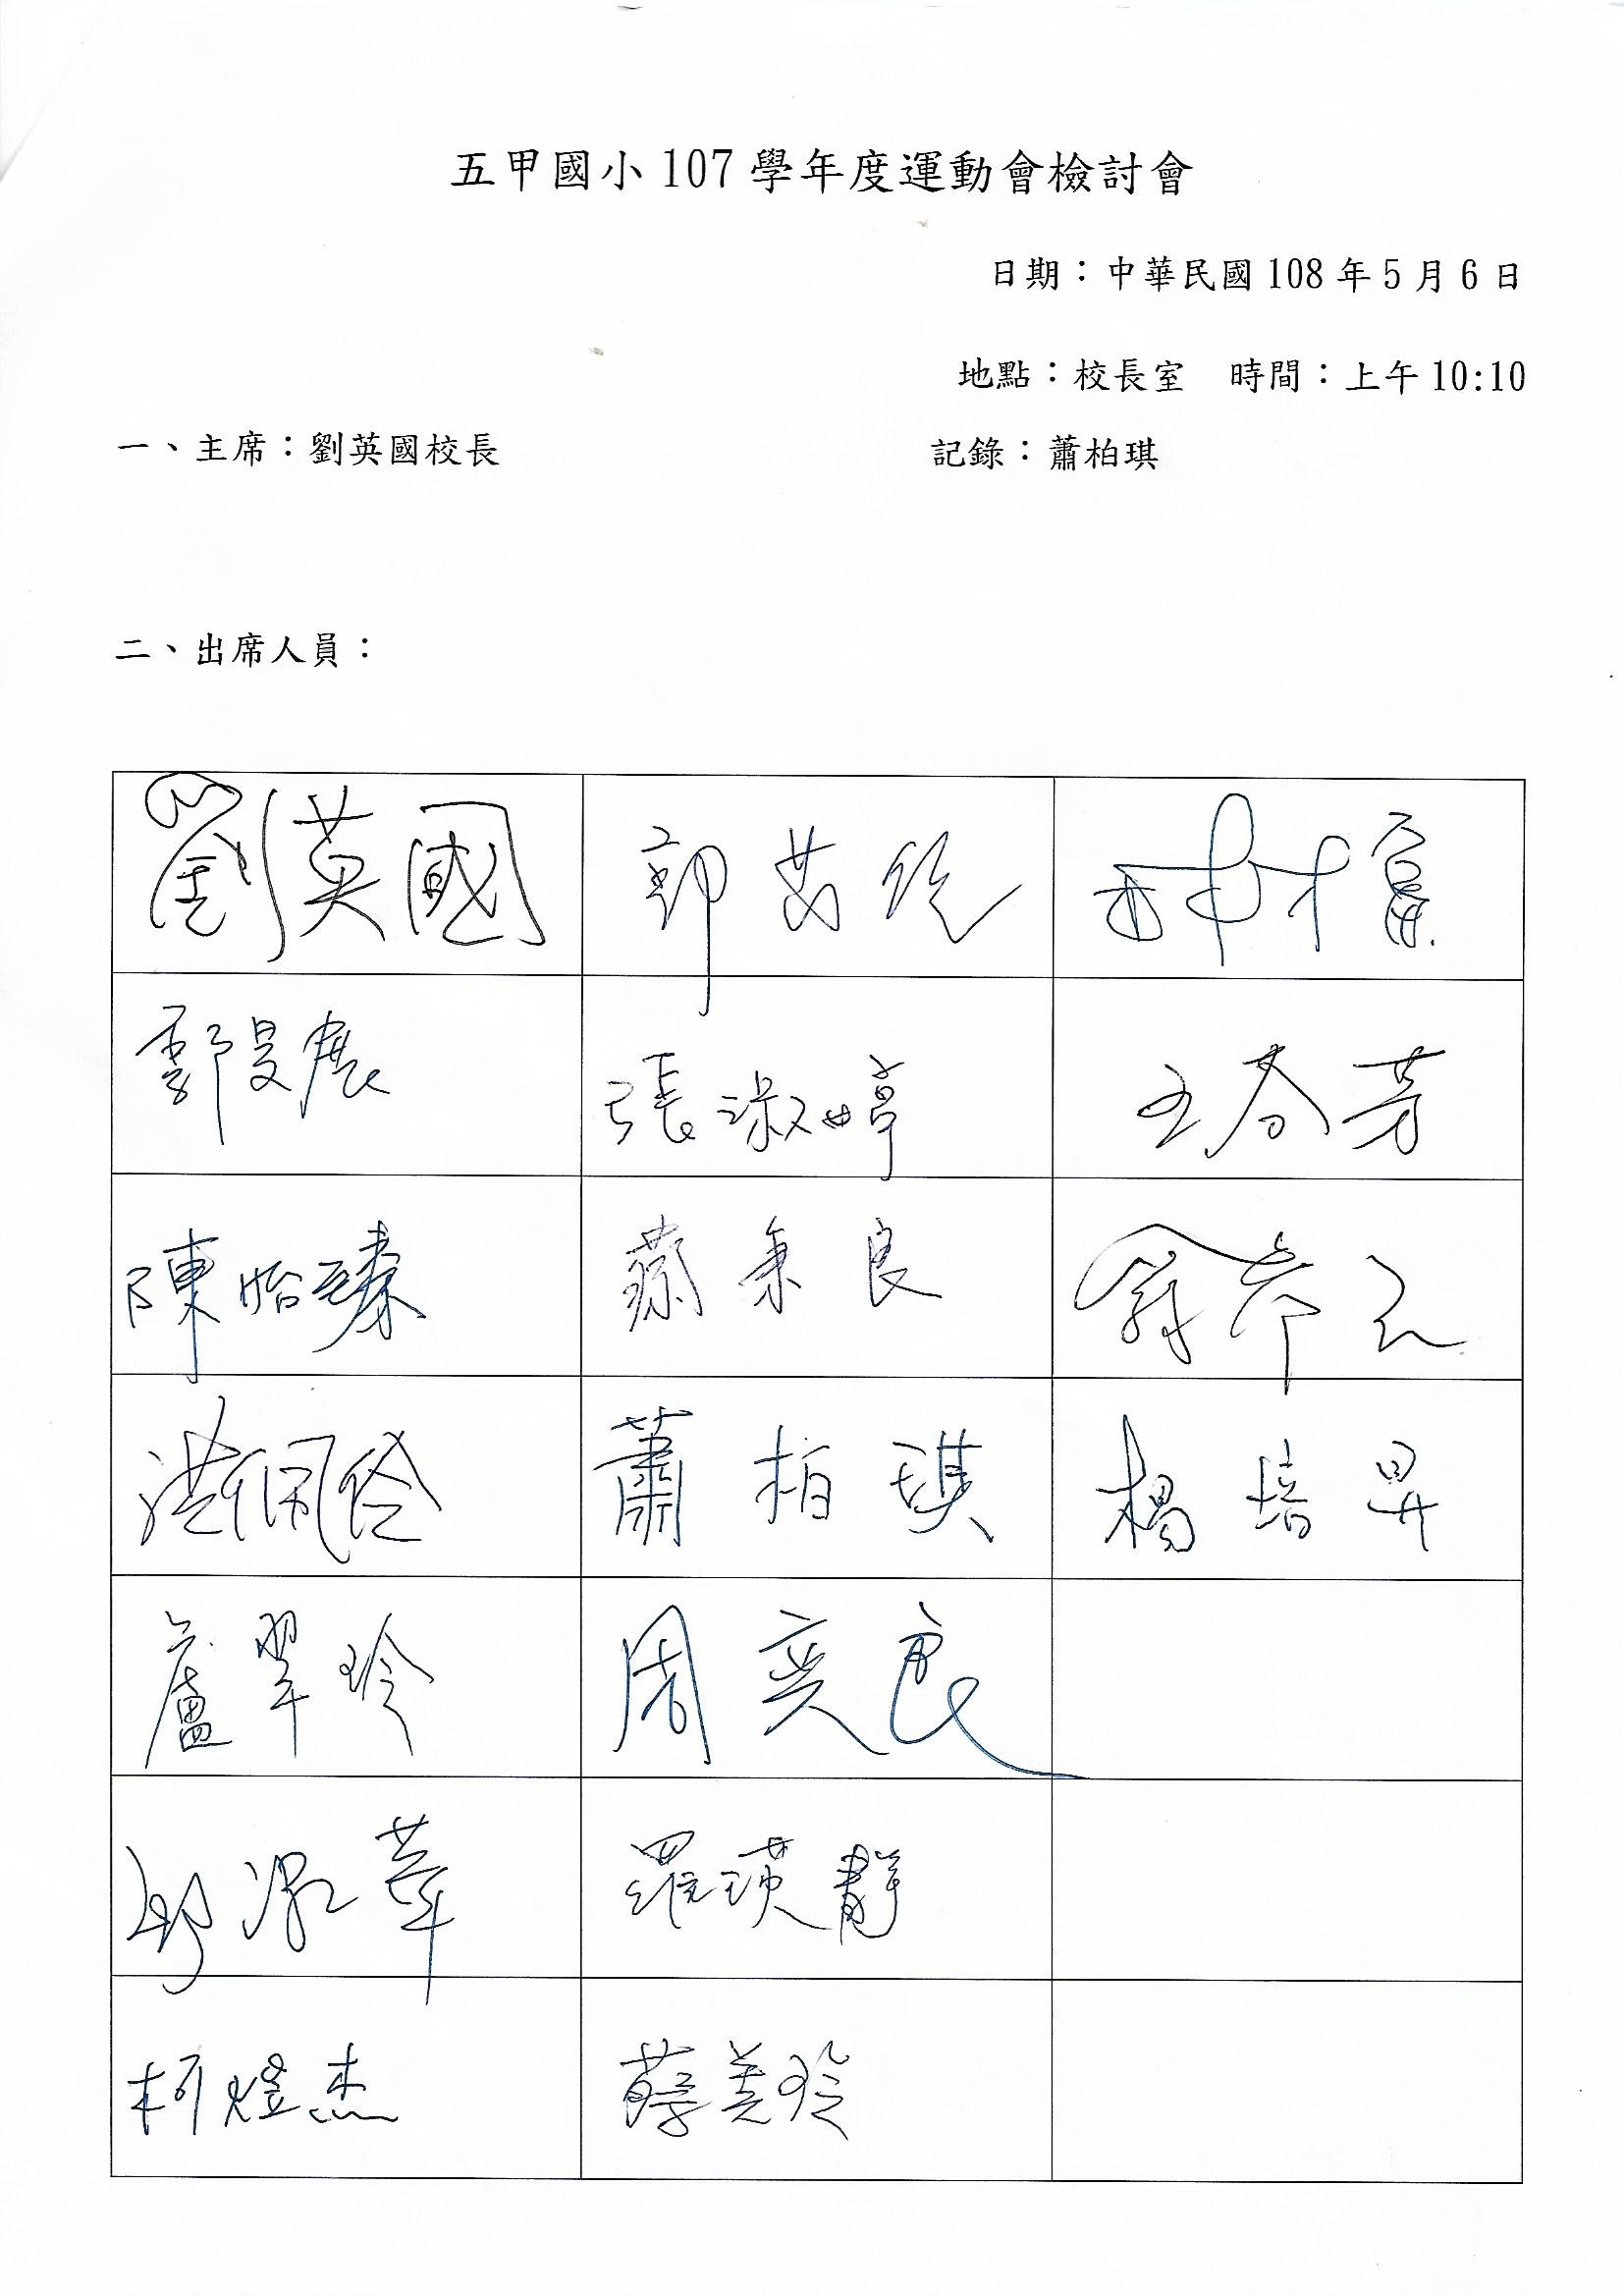 五甲國小107學年度運動會檢討會
日期：中華民國108年5月6日
地點：校長室　時間：上午10:10
一、主席：劉英國校長　記錄：蕭柏琪
二、出席人員：
劉英國
張淑婷
陳怡蓁 蔡秉良
洪佩伶 蕭柏琪 楊培昇
盧翠玲 周奕良
羅瑛靜
柯煜杰 薛美玲